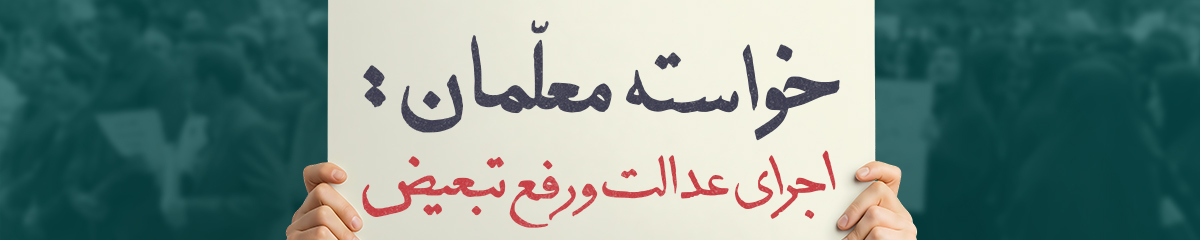 خواسته معلّمان:
اجرای عدالت و رفع تبعیض